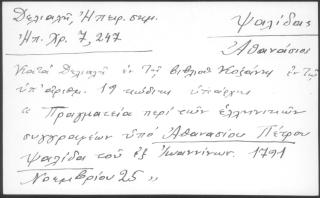 Δελιαλῆ, Ἠπειρ. σημ.
Ἠπ. Χρ. 7, 247
Ψαλίδας
Ἀθανάσιος
Κατὰ Δελιαλῆ ἐν Τῇ βιβλιοθ Κοζάνης ἐν Τῷ
ὑπ' ἀριθμ. 19 κώδικι ὑπάρχει
"Πραγματεία περὶ τῶν ἑλληνικῶν
συγγραφέων ὑπὸ Ἀθανασίου Πέτρου
Ψαλίδα τοῦ ἐξ Ἰωαννίνων. 1791
Νοεμβρίου 25"